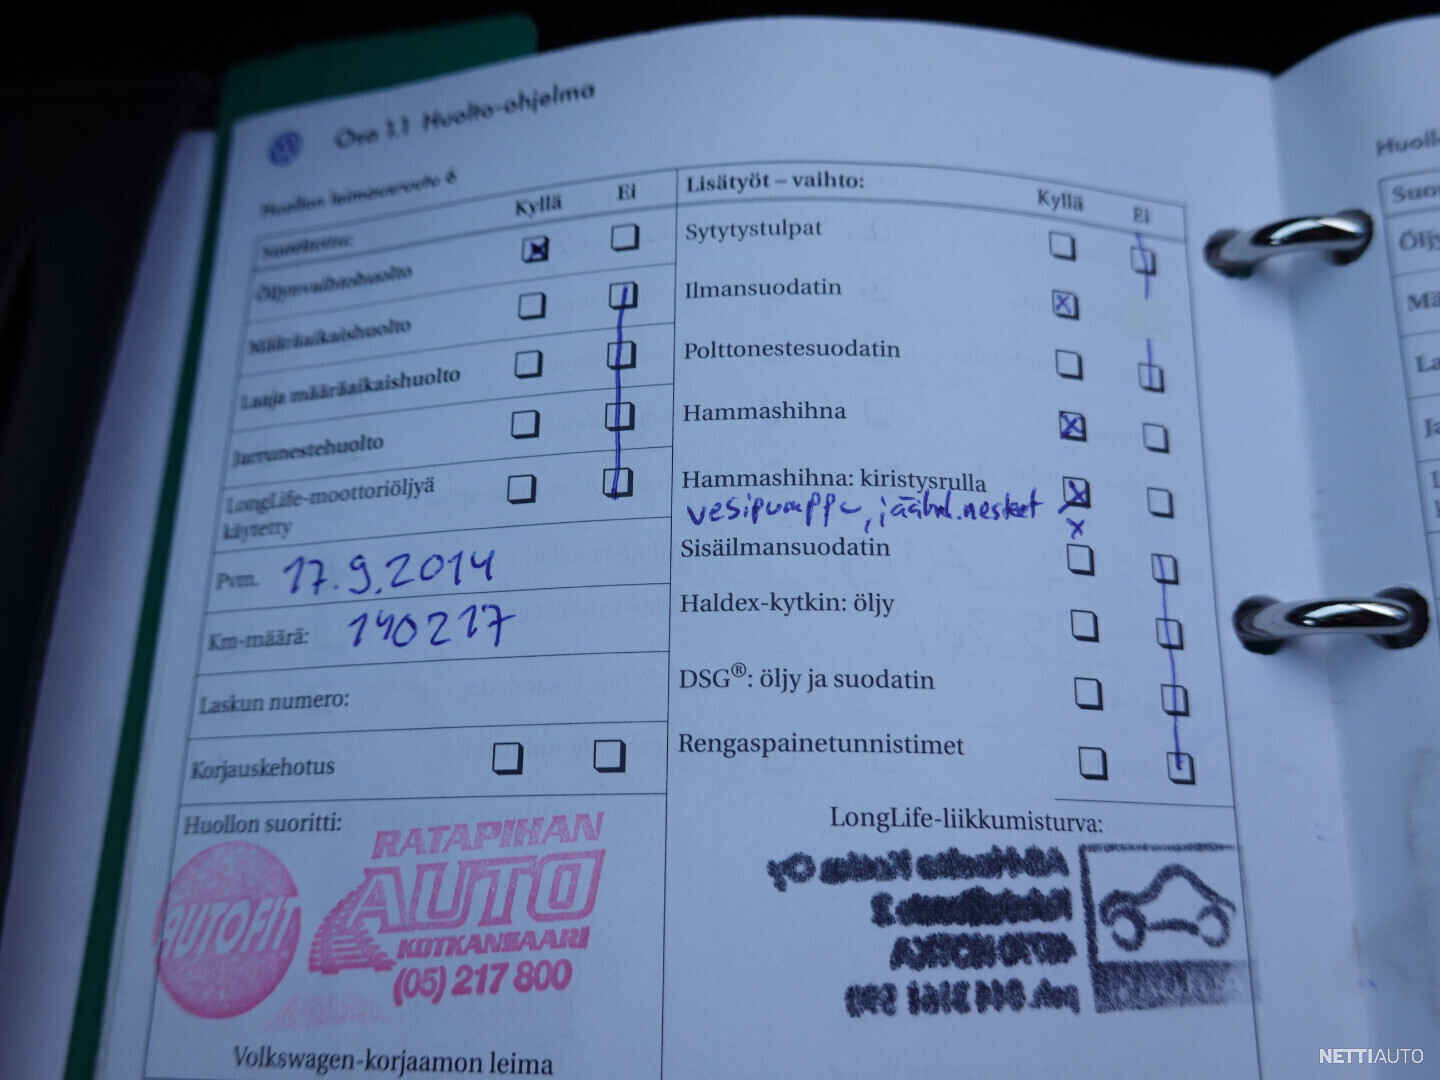 Osa 1.1 Huolto-ohjelma
Huollon leimausruutu 6
Suoritettu:
Kyllä
Ei
Öljynvaihtohuolto
Määräaikaishuolto
Laaja määräaikaishuolto
Jarrunestehuolto
LongLife-moottoriöljyä
käytetty
Pvm. 17.9.2014
Km-määrä: 140217
Laskun numero:
Korjauskehotus
Huollon suoritti:
AUTOFIT
RATAPIHAN
AUTO
KOTKANSAARI
(05) 217 800
Volkswagen-korjaamon leima
Lisätyöt – vaihto:
Kyllä
Ei
Sytytystulpat
Ilmansuodatin
Polttonestesuodatin
Hammashihna
Hammashihna: kiristysrulla
vesipumppu, jäähd.nesteet
Sisäilmansuodatin
Haldex-kytkin: öljy
DSG®: öljy ja suodatin
Rengaspainetunnistimet
LongLife-liikkumisturva:
Huoll
Suo
Öljy
Mä
La
Ja
NETTIAUTO